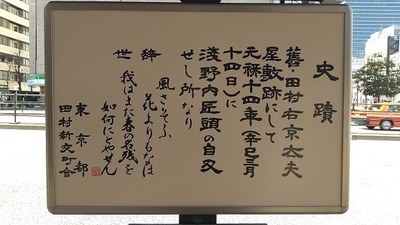 史蹟
舊・田村右京太夫
屋敷跡にして
元禄十四年(辛巳三月
十四日)に
淺野内匠頭の自刃
せし所なり
辞世
風さそふ
花よりもなほ
我はまた春の名残を
如何にとやせん
東京都
田村新交町会